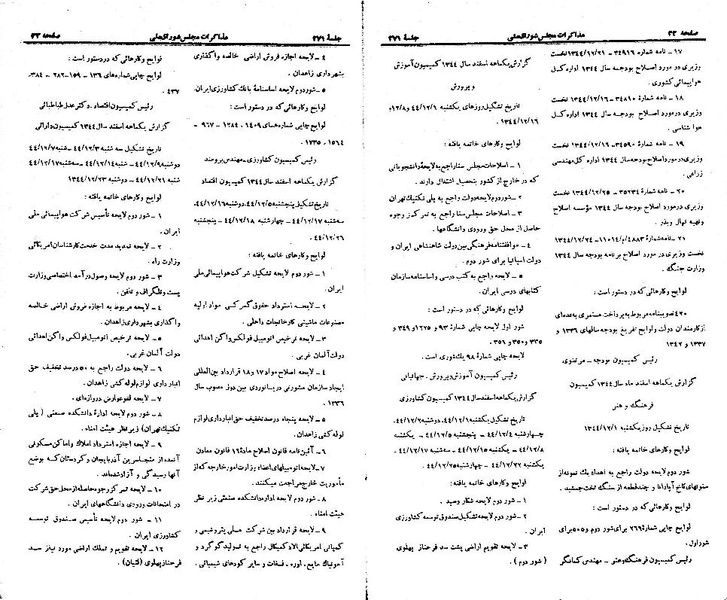 صفحه ۲۲ مذاکرات مجلس شورایملی جلسهٔ ۲۷۱
۱۷ - نامه شماره ۳۴۹۱۶ - ۱۳۴۴/۱۲/۲۱ نخست
وزیری در مورد اصلاح بودجه سال ۱۳۴۴ اداره کل
هواپیمائی کشوری.
۱۸ - نامه شمارهٔ ۳۴۸۱۰ - ۱۳۴۴/۱۲/۱۶ نخست
وزیری در مورد اصلاح بودجه سال ۱۳۴۴ اداره کل
هوا شناسی.
۱۹ - نامه شماره ۳۴۵۹۰ - ۱۳۴۴/۱۲/۱۶ نخست
وزیری در مورد اصلاح بودجه سال ۱۳۴۴ اداره کل مهندسی
زراعی.
۲۰ - نامه شماره ۳۵۲۳۴ - ۱۳۴۴/۱۲/۲۵ نخست
وزیری در مورد اصلاح بودجه سال ۱۳۴۴ مؤسسه اصلاح
و تهیه نهال و بذر.
نخست وزیری در مورد اصلاح برنامه بودجه سال ۱۳۴۴
وزارت جنگ.
لوایح و کارهائی که در دستور است:
۴۲۰ تصویبنامه مربوط به پرداخت مستمری به عده‌ای
از کارمندان دولت و لوایح تفریغ بودجه سالهای ۱۳۳۶ و
۱۳۳۷ و ۱۳۴۲
رئیس کمیسیون بودجه - مرتضوی
گزارش یکماهه اسفند ماه سال ۱۳۴۴ کمیسیون
فرهنگ و هنر
تاریخ تشکیل روز یکشنبه ۱۳۴۴/۱۲/۱
لوایح و کارهای خاتمه یافته:
شور دوم لایحه دولت راجع به اهداء یک نمونه از
ستونهای کاخ آپادانا و چند قطعه از سنگ تخت جمشید.
لوایح و کارهائی که در دستور است:
لوایح چاپی شمارهٔ ۲۶۹ برای شور دوم و ۵۰۵ برای
شور اول.
رئیس کمیسیون فرهنگ و هنر - مهندس کمانگر
گزارش یکماهه اسفند سال ۱۳۴۴ کمیسیون آموزش
و پرورش
تاریخ تشکیل روزهای یکشنبه ۴۴/۱۲/۱ و ۱۲/۸ و
۱۳۴۴/۱۲/۱۶
لوایح و کارهای خاتمه یافته:
۱ - اصلاحات مجلس سنا راجع به لایحهٔ دانشجویانی
که در خارج از کشور بتحصیل اشتغال دارند.
۲ - شور دوم لایحه دولت راجع به پلی تکنیک تهران
۳ - اصلاحات مجلس سنا راجع به تمرکز وجوه
حاصل از محل حق ورودی دانشگاهها.
۴ - موافقتنامه فرهنگی بین دولت شاهنشاهی ایران و
دولت اسپانیا برای شور دوم.
۵ - لایحه راجع به کتب درسی و اساسنامه سازمان
کتابهای درسی ایران.
لوایح و کارهائی که در دستور است:
شور اول لایحه چاپی شمارهٔ ۹۳ و ۱۲۲۵ و ۳۴۹ و
۳۳۵ و ۳۵۰ و ۳۵۱.
لایحه چاپی شمارهٔ ۹۸ یک شوری.
رئیس کمیسیون آموزش و پرورش - جهانبانی
گزارش یکماهه اسفند سال ۱۳۴۴ کمیسیون کشاورزی
تاریخ تشکیل یکشنبه ۴۴/۱۲/۱، دوشنبه ۴۴/۱۲/۲،
چهارشنبه ۴۴/۱۲/۴ - پنجشنبه ۴۴/۱۲/۵ - یکشنبه
۴۴/۱۲/۸ - یکشنبه ۴۴/۱۲/۱۵ - سه‌شنبه ۴۴/۱۲/۱۷
یکشنبه ۴۴/۱۲/۲۲ - چهارشنبه ۴۴/۱۲/۲۵.
لوایح و کارهای خاتمه یافته:
۱ - شور دوم لایحه شکار و صید.
۲ - شور دوم لایحه تشکیل صندوق توسعه کشاورزی
ایران.
۳ - لایحه تقویم اراضی پشت سد فرحناز پهلوی
(شور دوم).
جلسهٔ ۲۷۱ مذاکرات مجلس شورایملی صفحه ۲۳
۴ - لایحه اجازه فروش اراضی خالصه و واگذاری
بشهرداری زاهدان.
۵ - شور دوم لایحه اساسنامهٔ بانک کشاورزی ایران.
لوایح و کارهائی که در دستور است:
لوایح چاپی شمره‌های ۱۴۰۹ - ۱۲۸۴ - ۹۶۷ -
۱۵۶۴ - ۱۷۳۵.
رئیس کمیسیون کشاورزی - مهندس برومند
گزارش یکماهه اسفند سال ۱۳۴۴ کمیسیون اقتصاد
تاریخ تشکیل پنجشنبه ۴۴/۱۲/۵، دوشنبه ۴۴/۱۲/۱۶،
سه‌شنبه ۴۴/۱۲/۱۷ - چهارشنبه ۴۴/۱۲/۱۸ - پنجشنبه
۴۴/۱۲/۲۶.
لوایح و کارهای خاتمه یافته:
۱ - شور دوم لایحه تشکیل شرکت هواپیمائی ملی
ایران.
۲ - لایحه استرداد حقوق گمرکی مواد اولیه
مصنوعات ماشینی کارخانجات داخلی.
۳ - لایحه ترخیص اتومبیل فولکس واگن اهدائی
دولت آلمان غربی.
۴ - لایحه اصلاح مواد ۱۷ و ۱۸ قرارداد بین‌المللی
ایجاد سازمان مشورتی دریانوردی بین دول مصوب سال
۱۳۳۶
۵ - لایحه پنجاه درصد تخفیف حق انبارداری لوازم
لوله کشی زاهدان.
۶ - آئین‌نامه قانون اصلاح ماده ۱۶ قانون معادن
۷ - لایحه اتومبیلهای اعضاء وزارت امور خارجه که از
مأموریت خارج مراجعت میکنند.
۸ - شور دوم لایحه اداره دانشکده صنعتی زیر نظر
هیئت امناء.
۹ - لایحه قرارداد بین شرکت ملی پتروشیمی و
کمپانی امریکائی الاید کمیکال راجع به تولید گوگرد و
آمونیاک مایع، اوره، فسفات و سایر کودهای شیمیائی.
لوایح و کارهائی که در دستور است:
لوایح چاپی شماره‌های ۱۳۶ - ۱۵۹ - ۲۸۲ - ۳۸۴،
۴۳۷
رئیس کمیسیون اقتصاد - دکتر عدل طباطبائی
گزارش یکماهه اسفند سال ۱۳۴۴ کمیسیون دارائی
تاریخ تشکیل سه شنبه ۴۴/۱۲/۳ - شنبه ۴۴/۱۲/۷
دوشنبه ۴۴/۱۲/۹ - شنبه ۴۴/۱۲/۱۴ - سه‌شنبه ۴۴/۱۲/۱۷
شنبه ۴۴/۱۲/۲۱ - دوشنبه ۴۴/۱۲/۲۳.
لوایح و کارهای خاتمه یافته:
۱ - شور دوم لایحه تأسیس شرکت هواپیمائی ملی
ایران.
۲ - لایحه تمدید مدت خدمت کارشناسان امریکائی
وزارت راه.
۳ - لایحه وصول درآمد اختصاصی وزارت
پست و تلگراف و تلفن.
۴ - لایحه مربوط به اجازه فروش اراضی خالصه
و واگذاری بشهرداری زاهدان.
۵ - لایحه ترخیص اتومبیل فولکس واگن اهدائی
دولت آلمان غربی.
۶ - لایحه دولت راجع به ۵۰ درصد تخفیف حق
انبارداری لوازم لوله کشی زاهدان.
۷ - لایحه لغو عوارض دروازه‌ای.
۸ - شور دوم لایحه ادارهٔ دانشکده صنعتی (پلی
تکنیک تهران) زیر نظر هیئت امناء.
۹ - لایحه اجازه استرداد املاک و اماکن مسکونی
عده‌ای از متجاسرین آذربایجان و کردستان که بوضع
آنها رسیدگی و آزاد شده‌اند.
۱۰ - لایحه تمرکز وجوه حاصله از محل حق شرکت
در امتحانات ورودی دانشگاههای ایران.
۱۱ - شور دوم لایحه تأسیس صندوق توسعه
کشاورزی ایران.
۱۲ - لایحه تقویم و تملک اراضی مورد نیاز سد
فرحناز پهلوی (لتیان).